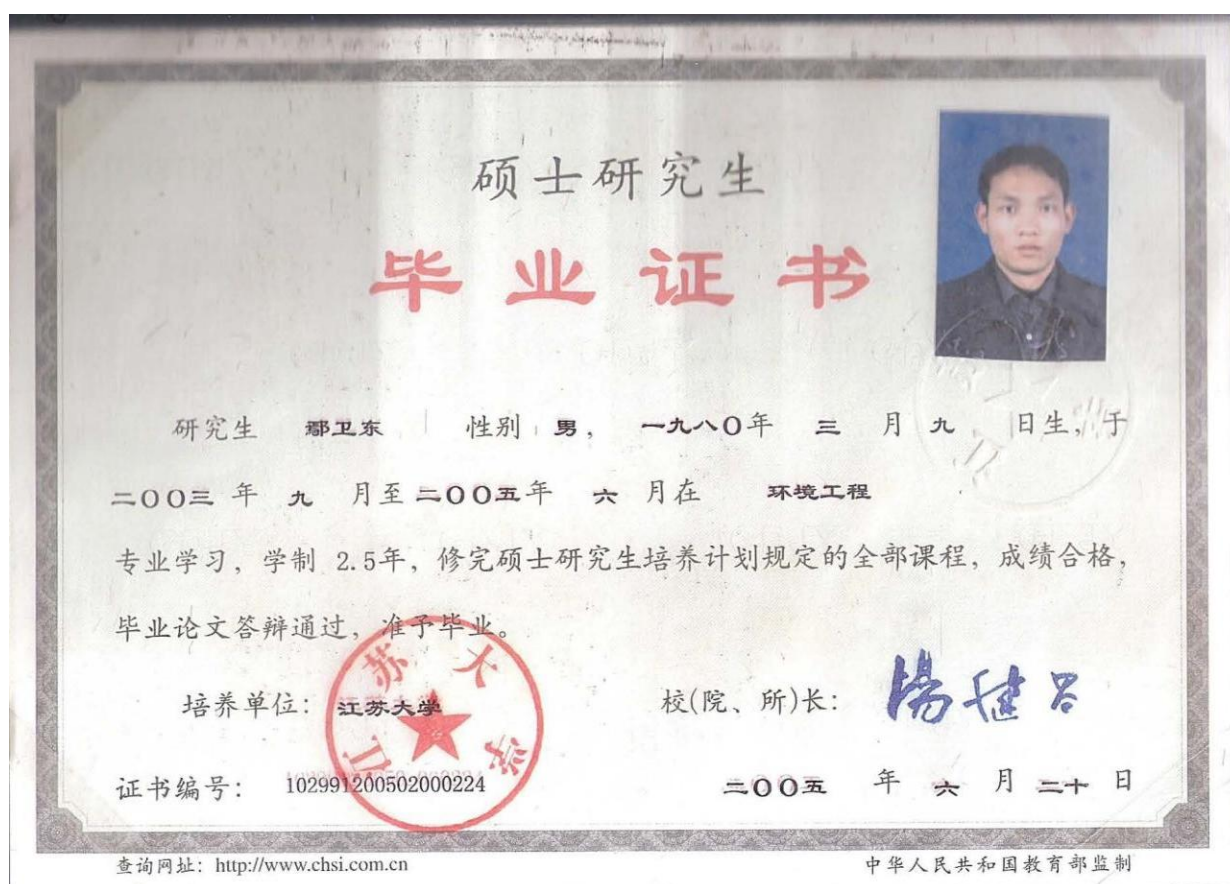 硕士研究生
毕业证书
研究生 鄢卫东 性别 男， 一九八〇年 三 月 九 日生，于
二〇〇三 年 九 月至 二〇〇五年 六 月在 环境工程
专业学习，学制 2.5年，修完硕士研究生培养计划规定的全部课程，成绩合格，
毕业论文答辩通过，准予毕业。
培养单位：江苏大学 校(院、所)长：
江苏大学
证书编号： 102991200502000224 二〇〇五 年 六 月 二十 日
查询网址：http://www.chsi.com.cn 中华人民共和国教育部监制